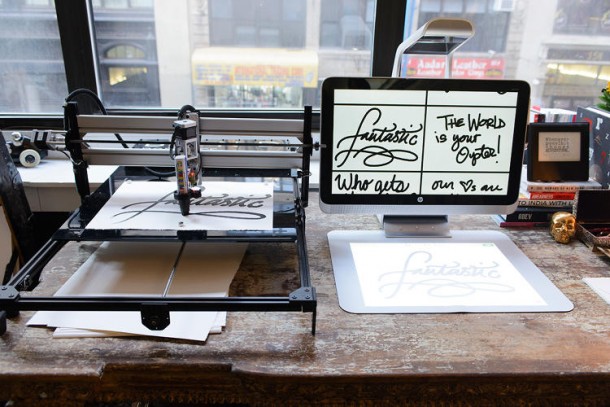 fantastic
fantastic
THE WORLD
is your
Oyster!
Who gets
our ♥s are
hp
fantastic
Leather
TO INDIA WITH L
OBEY